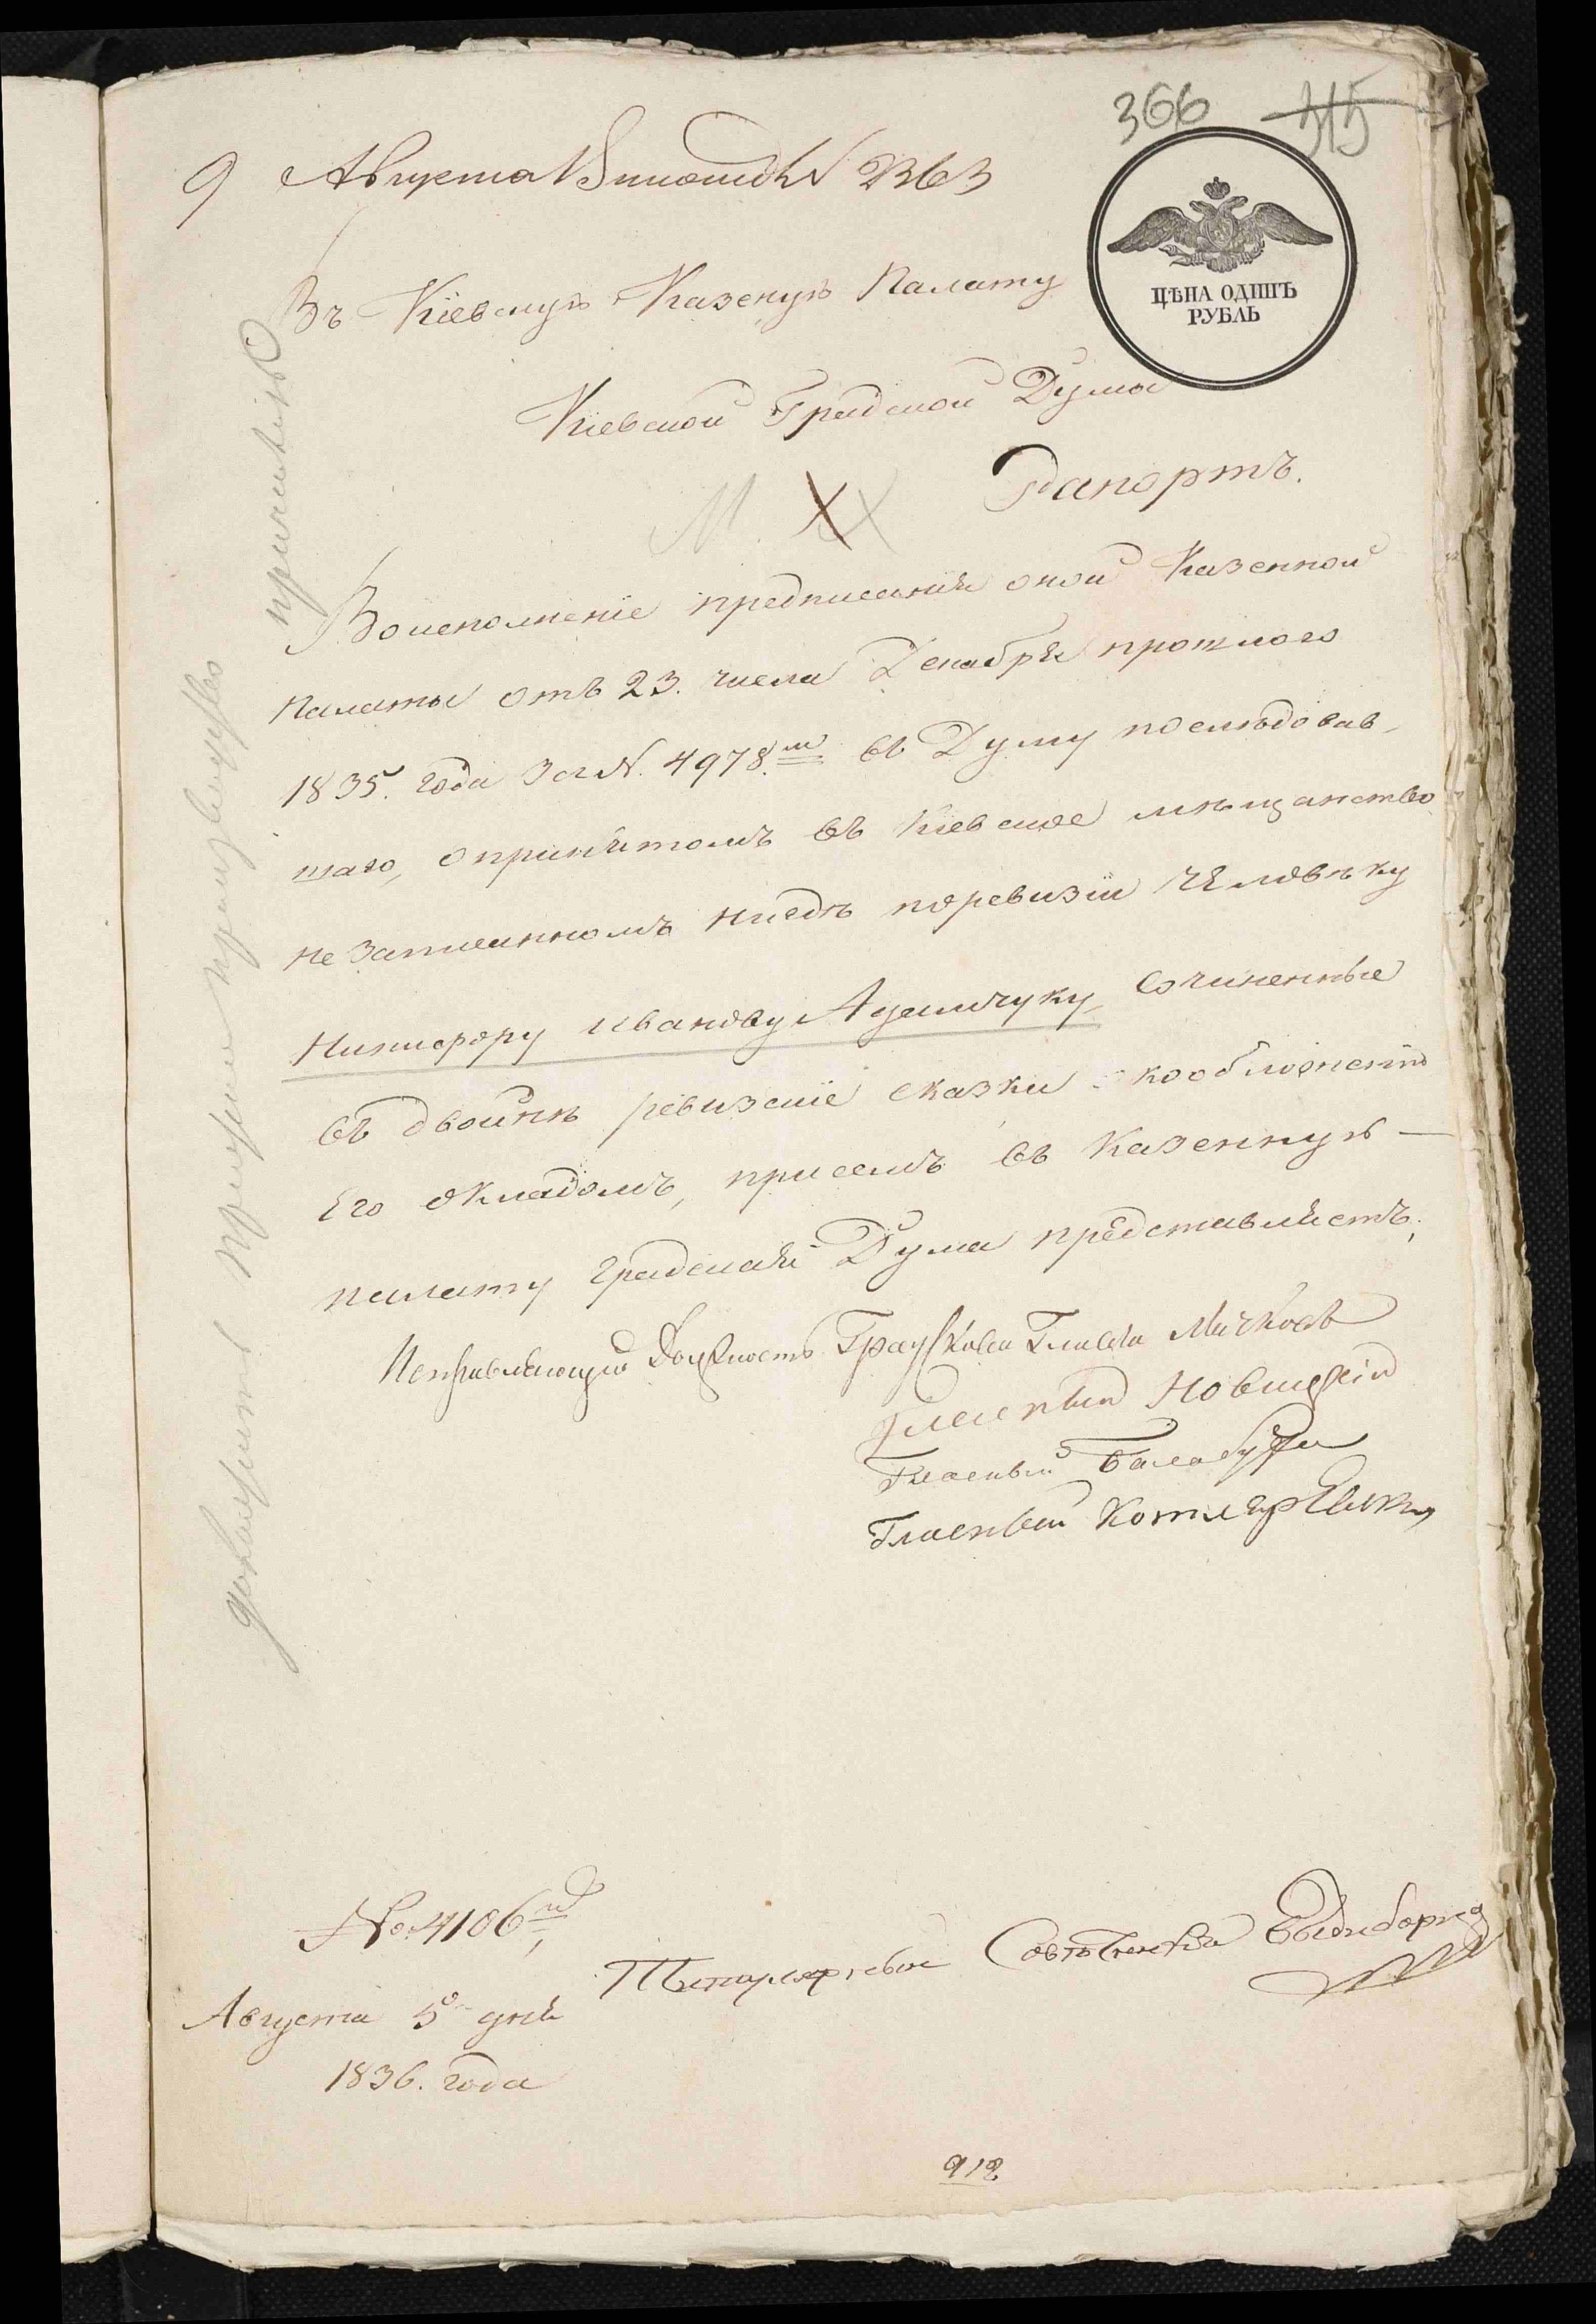 366 315
9 Августа № 2363
ЦѢНА ОДИНЪ
РУБЛЬ
Въ Кіевскую Казеную Палату
Кіевской Градской Думы
Рапортъ.
М. X X
Воисполненіе предписанія оной Казенной
палаты отъ 23. числа Декабря прошлого
1835. года за N. 4978.м въ Думу последовав-
шаго, опринятомъ въ Киевское мѣщанство
не записанномъ нигдѣ поревизіи человѣку
Никифору Иванову сочиненные
въ двойнѣ ревизскіе сказки кообложенію
Его окладомъ, присемъ въ Казенную —
палату градская Дума представляетъ.
Исправляющій Должность Градскаго Главы
Гласный Новицкій
Гласный Балабуха
Гласный Котляревский
№ 4106й
Титулярный Советникъ
Августа 5 дня
1836. года
912